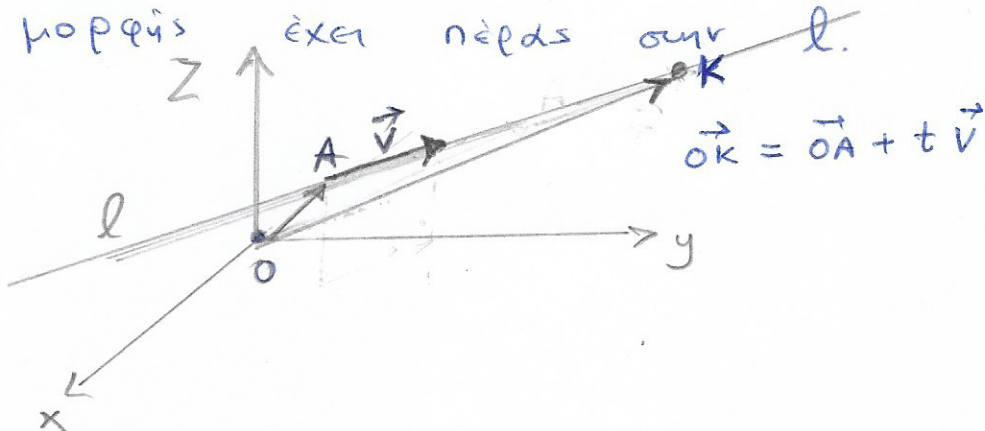 μορφής έχει πέρας στην l.
Z
K
A V⃗
O⃗K = O⃗A + t V⃗
l
y
O
x